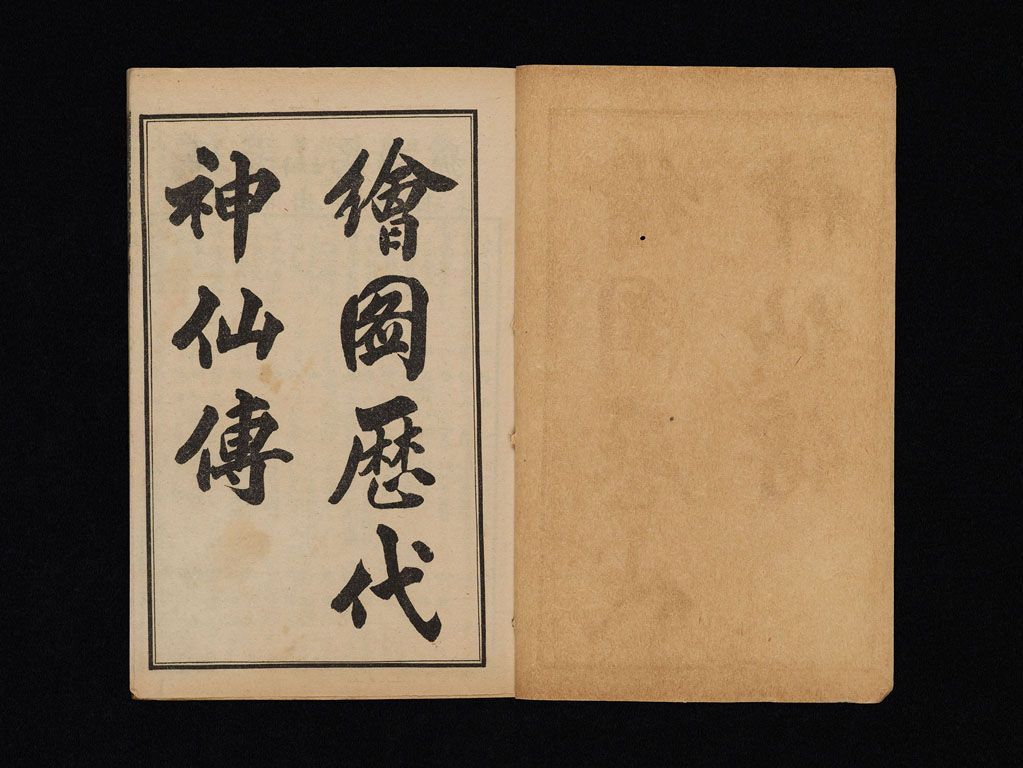 繪圖歷代
神仙傳